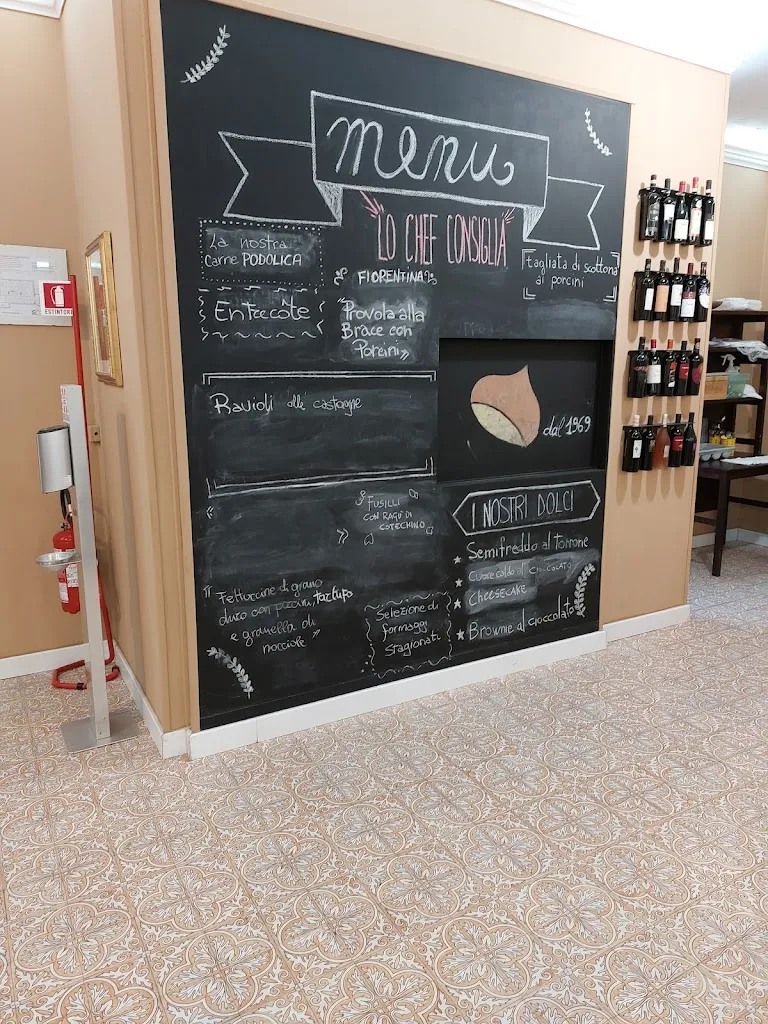 menu
LO CHEF CONSIGLIA
La nostra
carne PODOLICA
FIORENTINA
tagliata di scottona
ai porcini
Entrecôte
"Provola alla
Brace con
Porcini"
Ravioli alle castagne
dal 1969
FUSILLI
CON RAGÙ DI
COTECHINO
I NOSTRI DOLCI
Semifreddo al Torrone
Cuore caldo al CIOCCOLATO
CHEESECAKE
Brownie al cioccolato
"Fettuccine di grano
duro con porcini, tartufo
e granella di
nocciole"
Selezione di
formaggi
stagionati
ESTINTORE